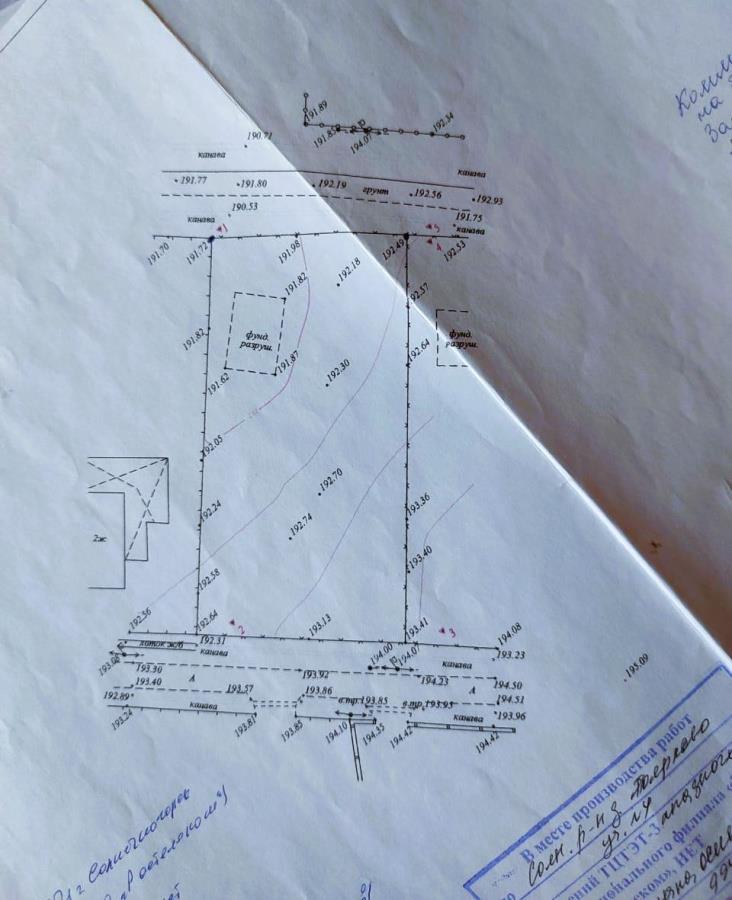 191.89
191.85
194.07
192.34
190.71
канава
канава
191.77
191.80
192.19
грунт
192.56
192.93
190.53
канава
191.75
канава
1
5
4
191.70
191.72
191.98
192.49
192.53
192.18
191.82
192.57
фунд.
разруш.
191.82
192.64
фунд.
разруш.
191.62
191.87
192.30
192.05
192.70
193.36
192.24
192.74
2ж
193.40
192.58
192.56
192.64
2
193.13
193.41
3
194.08
192.31
лоток ж/б
канава
193.08
193.30
193.92
194.00
194.07
канава
193.23
193.40
А
194.23
А
194.50
192.89
193.57
193.86
в.тр.193.85
в.тр.193.95
194.51
канава
193.24
193.81
193.85
194.10
194.35
194.42
канава
193.96
194.42
195.09
В месте производства работ
Солн. р-н
уч.
ТЦТЭТ-3
филиала
НЕТ
г Солнечногорск